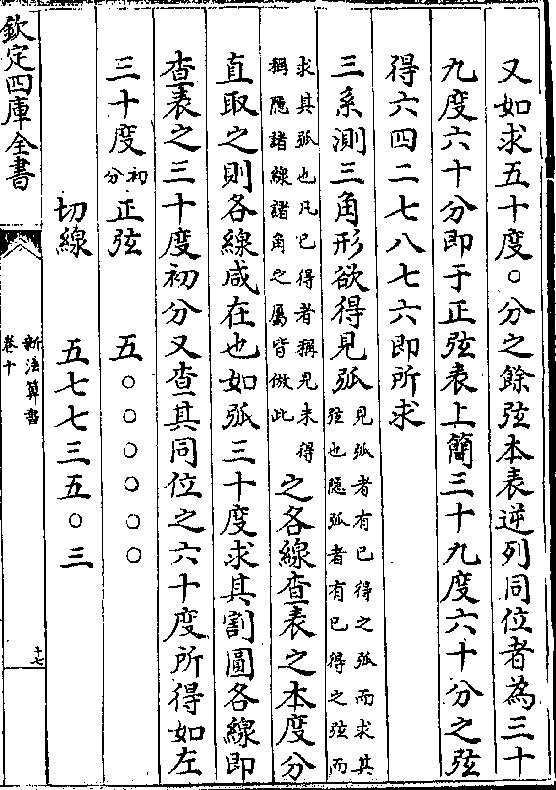 又如求五十度○分之餘弦本表逆列同位者為三十
九度六十分即于正弦表上簡三十九度六十分之弦
得六四二七八七六即所求
三系測三角形欲得見弧見弧者有已得之弧而求其
弦也隱弧者有已得之弦而
求其弧也凡已得者稱見未得
稱隱諸線諸角之屬皆倣此之各線查表之本度分
直取之則各線咸在也如弧三十度求其割圓各線即
查表之三十度初分又查其同位之六十度所得如左
三十度初分正弦 五○○○○○○
切線 五七七三五○三
欽定四庫全書
新法算書
卷十
十七